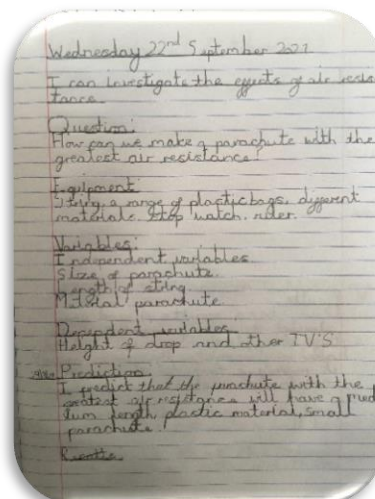 Wednesday 22nd September 2021
I can investigate the effects of air resis
tance.
Question:
How can we make a parachute with the
greatest air resistance?
Equipment
String, a range of plastic bags, different
materials, stop watch, ruler.
Variables:
Independent variables
Size of parachute.
Length of string
Material parachute
Dependent variables:
Height of drop and other IV'S
Prediction
I predict that the parachute with the
greatest air resistance will have a med
ium length, plastic material, small
parachute.